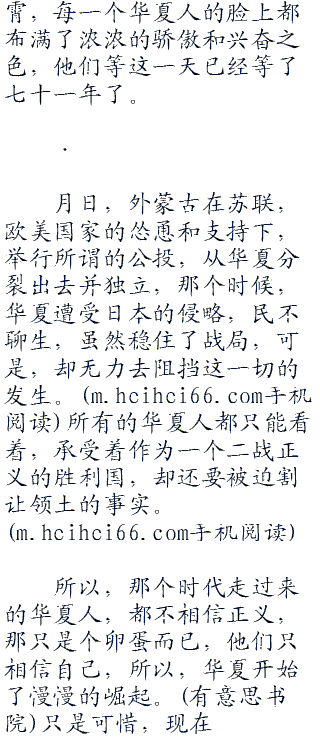 霄，每一个华夏人的脸上都
布满了浓浓的骄傲和兴奋之
色，他们等这一天已经等了
七十一年了。
.
月日，外蒙古在苏联，
欧美国家的怂恿和支持下，
举行所谓的公投，从华夏分
裂出去并独立，那个时候，
华夏遭受日本的侵略，民不
聊生，虽然稳住了战局，可
是，却无力去阻挡这一切的
发生。(m.hcihci66.com手机
阅读)所有的华夏人都只能看
着，承受着作为一个二战正
义的胜利国，却还要被迫割
让领土的事实。
(m.hcihci66.com手机阅读)
所以，那个时代走过来
的华夏人，都不相信正义，
那只是个卵蛋而已，他们只
相信自己，所以，华夏开始
了慢慢的崛起。(有意思书
院)只是可惜，现在